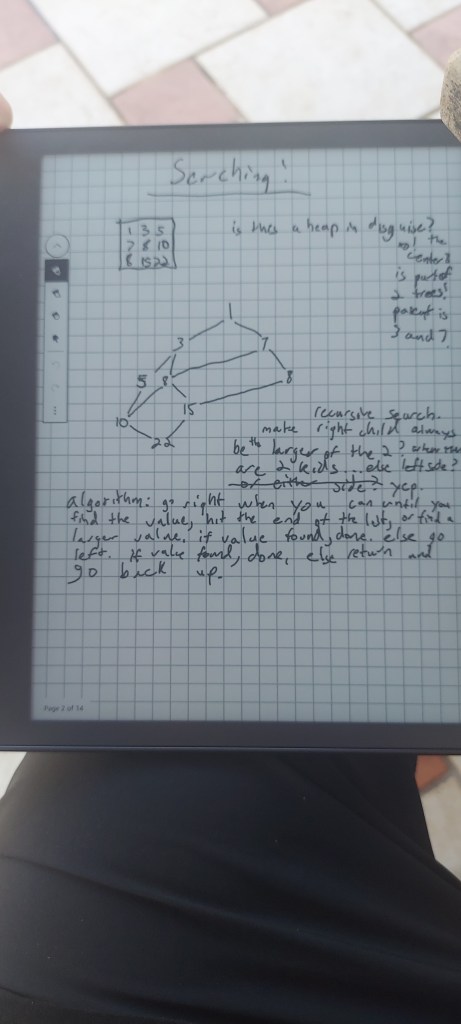 Serching!
1 3 5
7 8 10
8 15 22
is this a heap in disguise?
no! the
center 8
is part of
2 trees!
parent is
3 and 7
1
3 7
5 8 8
15
10
22
recursive search.
make right child always
be the larger of the 2? when there
are 2 kids ... else left side?
or either side? yep.
algorithm: go right when you can until you
find the value, hit the end of the list, or find a
larger value. if value found, done. else go
left. If value found, done, else return and
go back up.
Page 2 of 14